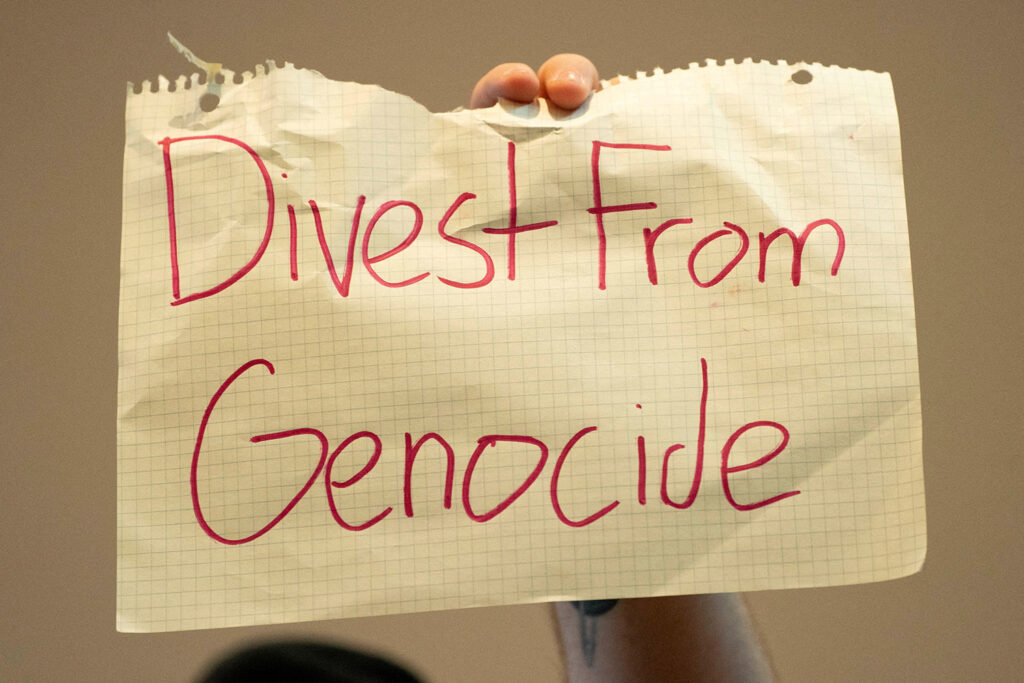 Divest From
Genocide